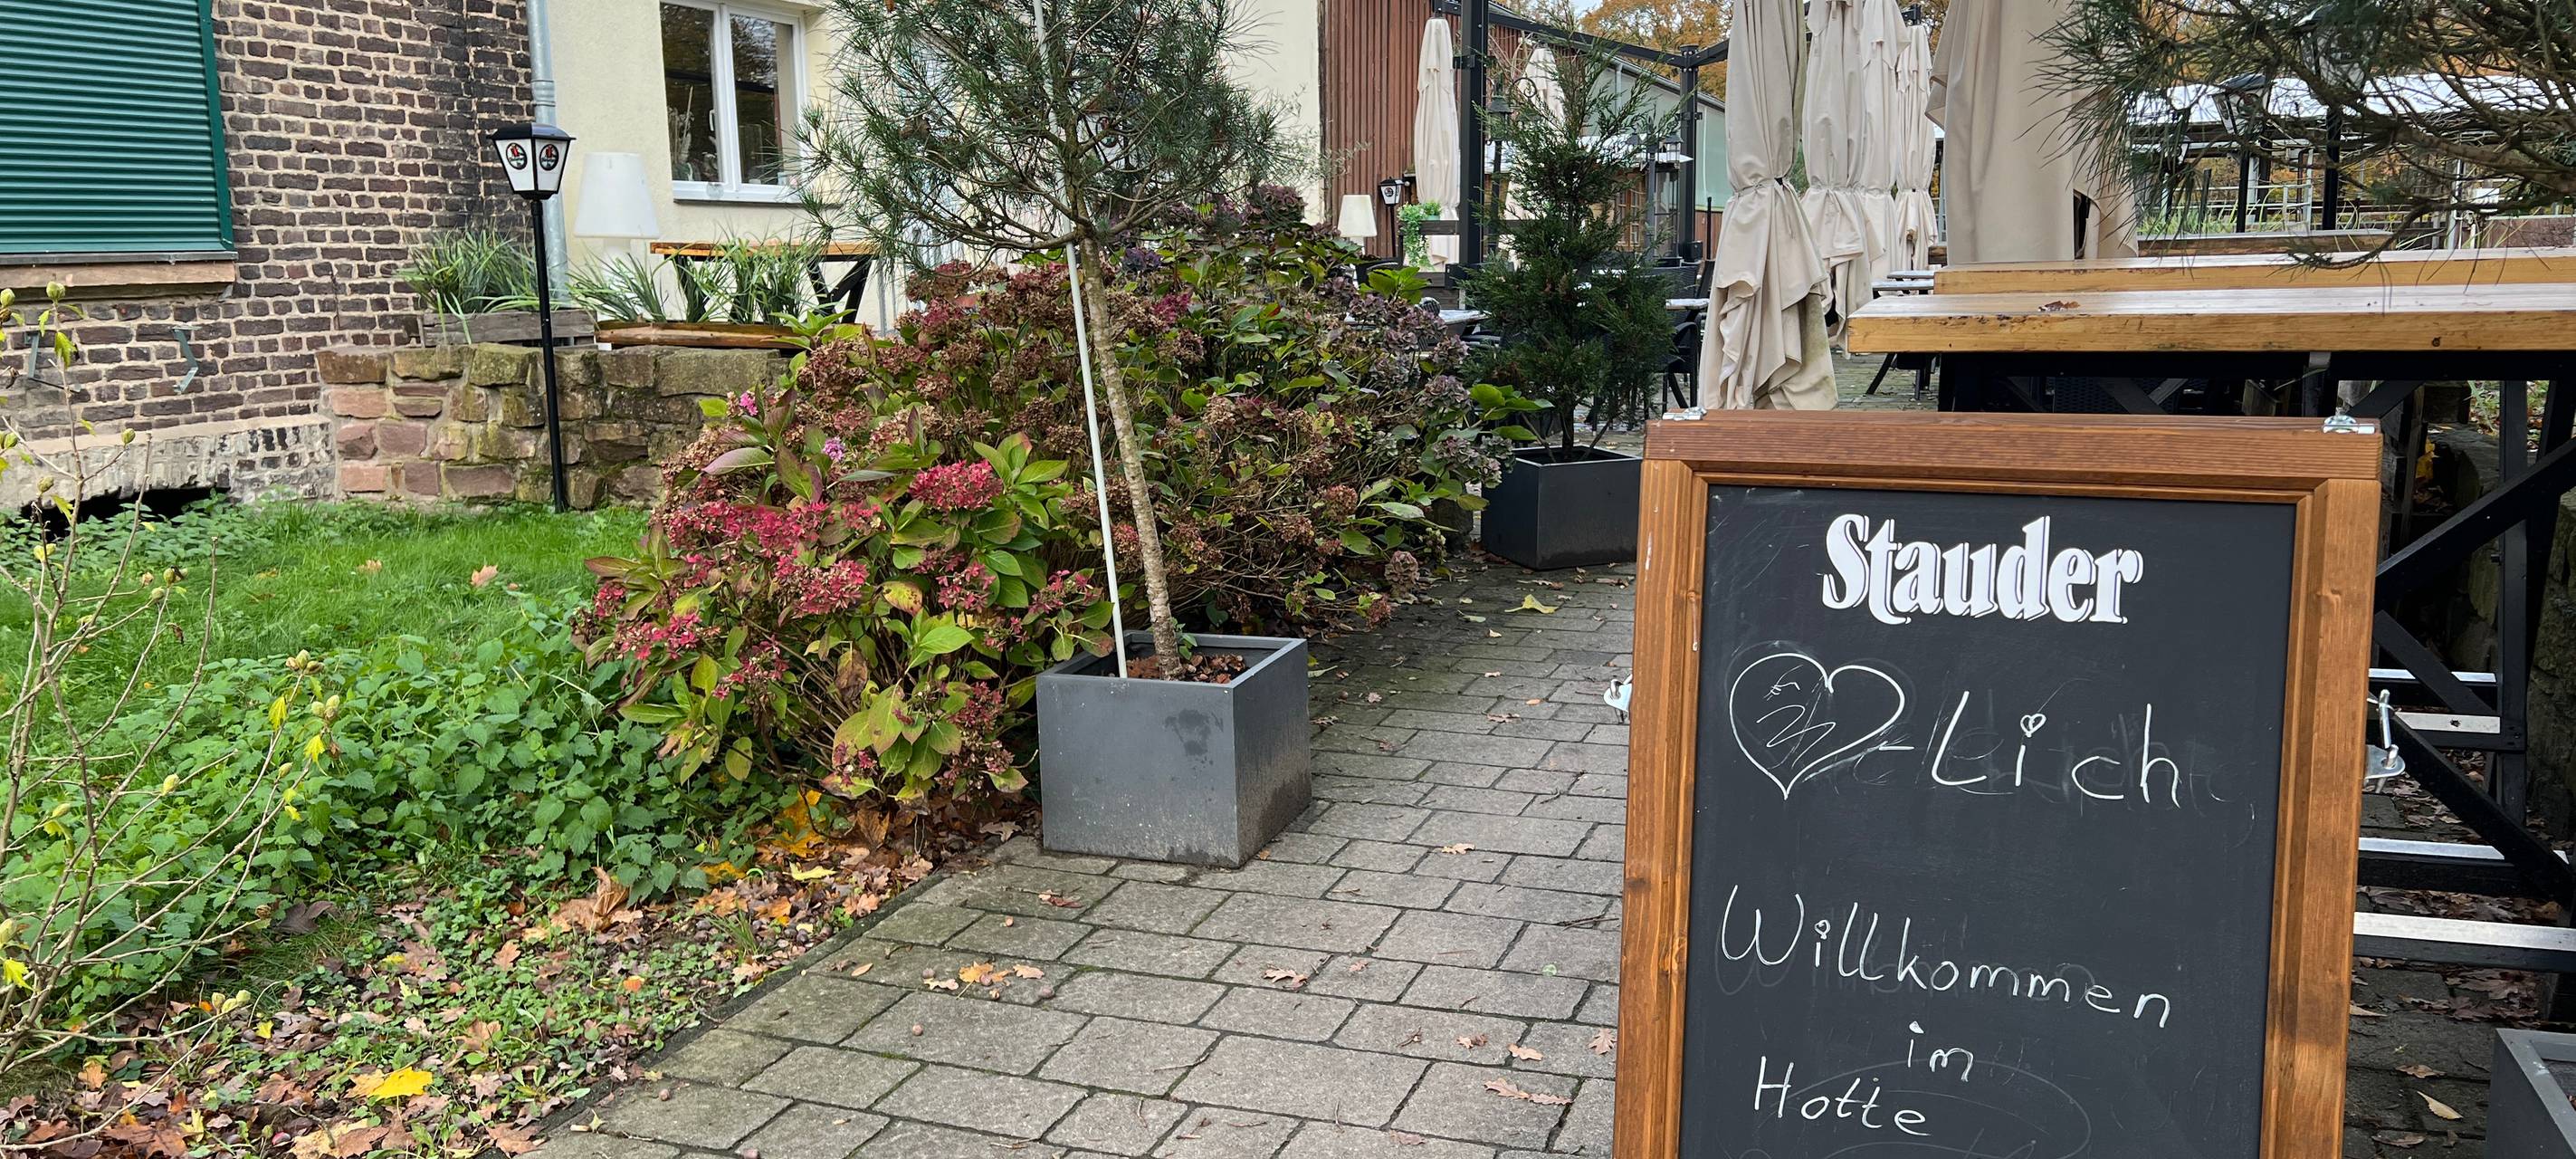 Stauder
-Lich
Willkommen
im
Hotte